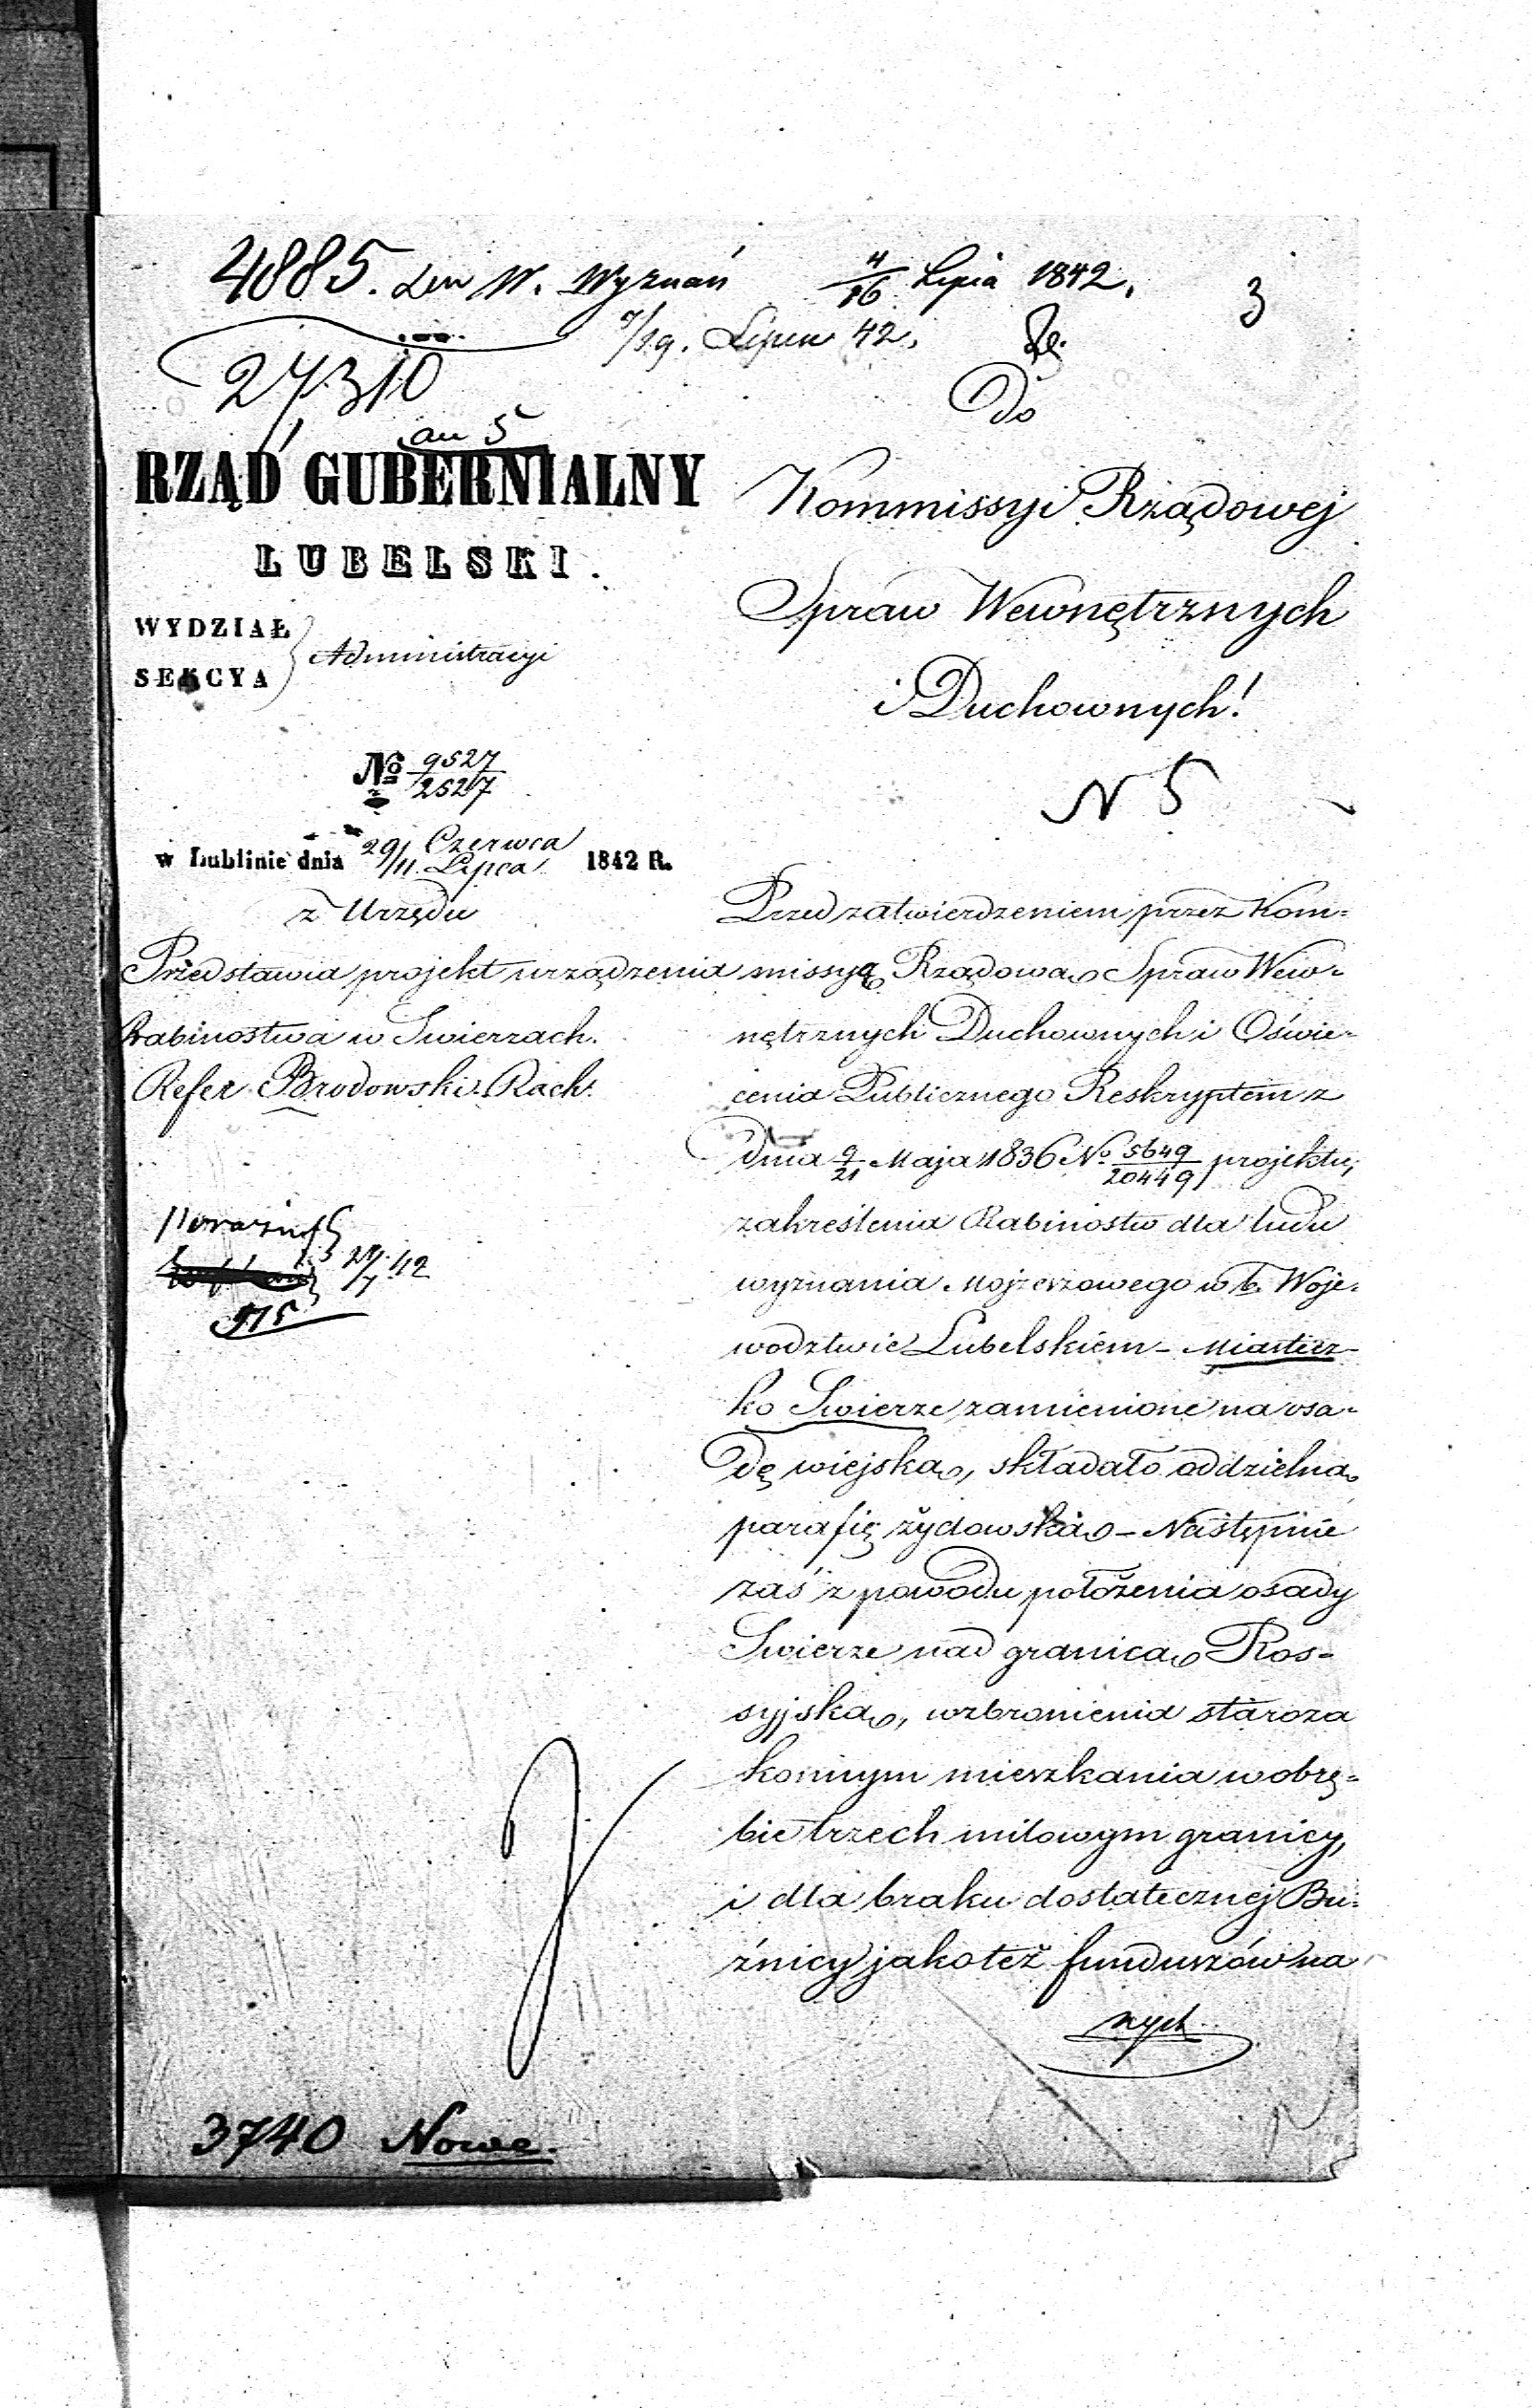 4885. W. Wyznań 4/16 Lipca 1842. 3
7/19. Lipca 42.
27310
au 5
RZĄD GUBERNIALNY
LUBELSKI.
WYDZIAŁ
SEKCYA
Administracyi
No 9527/2527
w Lublinie dnia 29/11 Czerwca Lipca 1842 R.
z Urzędu
Przedstawia projekt urządzenia
Rabinostwa w Swierzach.
Refer. Brodowski Rach.
27/7 42
515
3740 Nowe.
Do
Kommissyi Rządowej
Spraw Wewnętrznych
i Duchownych!
N 5
Przed zatwierdzeniem przez Kom=
missyą Rządową Spraw Wew=
nętrznych Duchownych i Oświe=
cenia Publicznego Reskryptem z
dnia 9/21 Maja 1836 No. 5649/20449 projektu,
zakreślenia Rabinostw dla ludu
wyznania Mojżeszowego w b. Woje=
wodztwie Lubelskiem – Miastecz-
ko Swierze zamienione na osa=
dę wiejską, składało oddzielną
parafię żydowską – Następnie
zaś z powodu położenia osady
Swierze nad granicą Ros=
syjską, wzbronienia staroza
konnym mieszkania w obrę=
bie trzech milowym granicy,
i dla braku dostatecznej Bu=
źnicy jakoteż funduszów na
nych